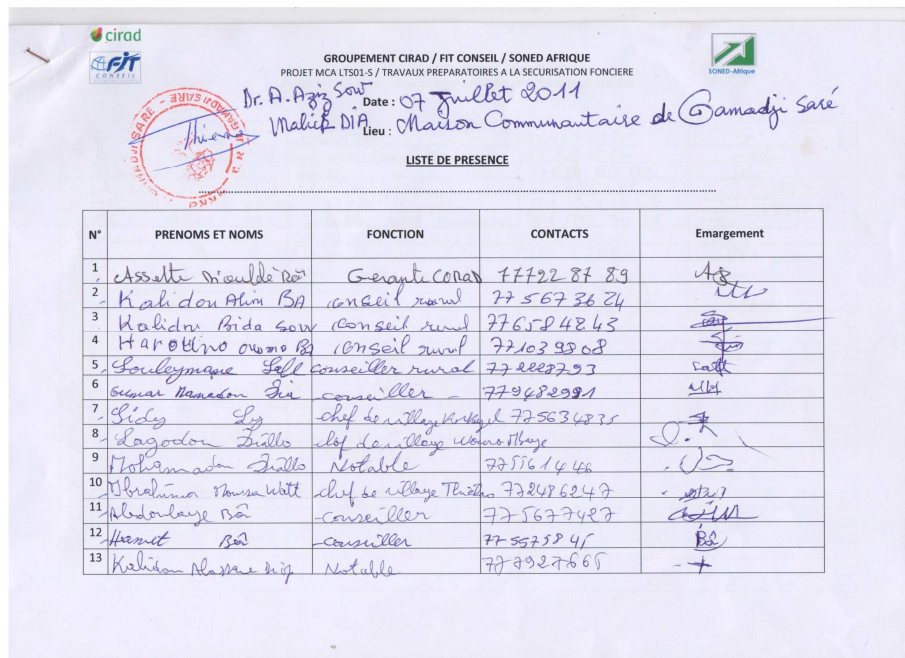 cirad
FIT
CONSEIL
SONED-Afrique
GROUPEMENT CIRAD / FIT CONSEIL / SONED AFRIQUE
PROJET MCA LTS01-S / TRAVAUX PREPARATOIRES A LA SECURISATION FONCIERE
Dr. A. Aziz Sow
Date : 07 Juillet 2011
Malick DIA
Lieu : Maison Communautaire de Gamadji Saré
LISTE DE PRESENCE
N° PRENOMS ET NOMS FONCTION CONTACTS Emargement
1 Gerante 77722 87 89
2 Kalidou BA conseil rural 77 567 36 24
3 Kalidou Bida Sow conseil rural 776584843
4 conseil rural 771039808
5 Souleymane Sall conseiller rural
6 Oumar Mamadou Dia conseiller 779482991
7 Sidy Ly chef de village 775634835
8 Diallo chef de village
9 Mohamadou Diallo Notable
10 Ibrahima Moussa Watt chef de village 772486247
11 Abdoulaye Bâ conseiller 775677427
12 Hamet Bâ conseiller Bâ
13 Kalidou Alassane Notable 777927665